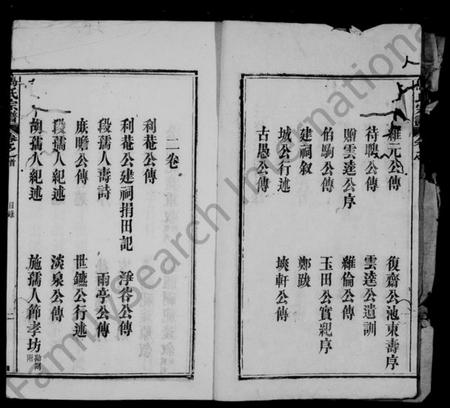 維元公傳 復齋公池東壽序
待聘公傳 雲逵公遺訓
贈雲逵公序 維倫公傳
伯駒公傳 玉田公實親序
建祠叙 鄭跋
城公行述 埉軒公傳
古愚公傳
二卷
利菴公傳
利菴公建祠捐田記 淳谷公傳
段孺人壽詩 雨亭公傳
族瞻公傳 世鑣公行述
段孺人紀述 淡泉公傳
胡孺人紀述 施孺人節孝坊
氏宗譜
目錄
FamilySearch International